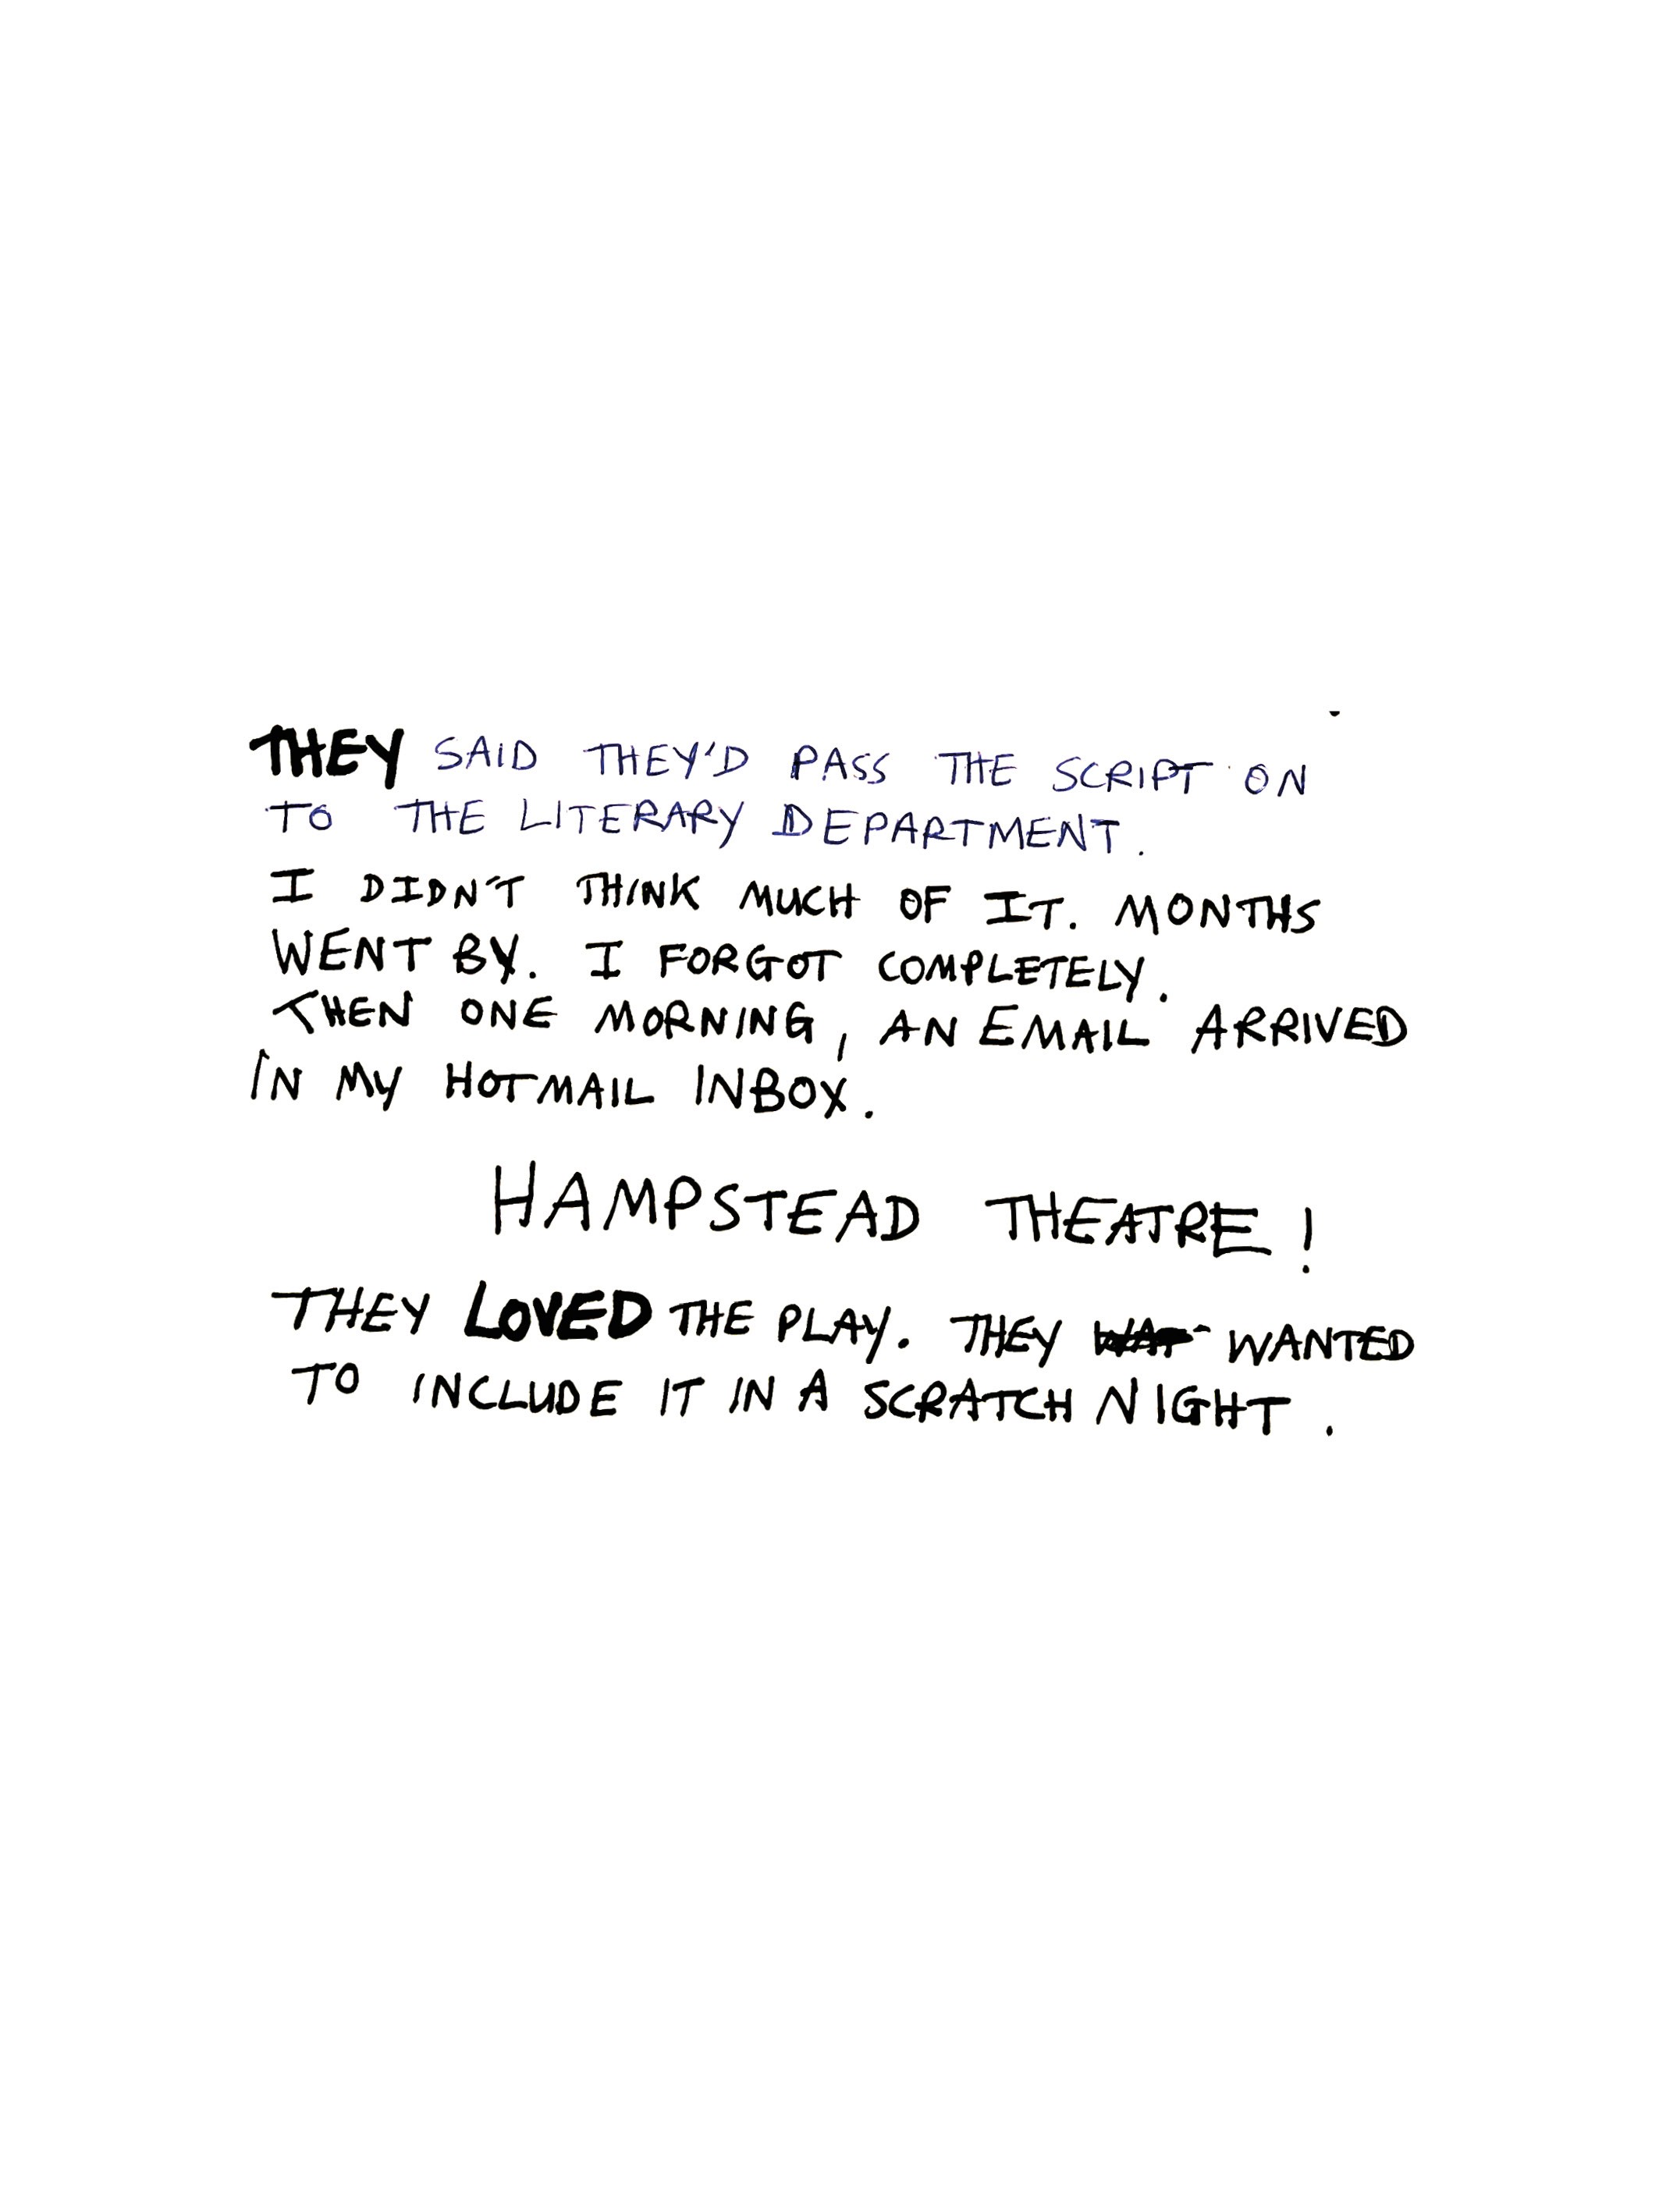 THEY SAID THEY'D PASS THE SCRIPT ON
TO THE LITERARY DEPARTMENT.
I DIDN'T THINK MUCH OF IT. MONTHS
WENT BY. I FORGOT COMPLETELY.
THEN ONE MORNING, AN EMAIL ARRIVED
IN MY HOTMAIL INBOX.
HAMPSTEAD THEATRE!
THEY LOVED THE PLAY. THEY WANTED
TO INCLUDE IT IN A SCRATCH NIGHT.